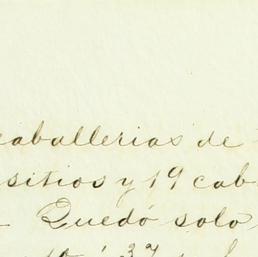 caballerias de
sitios y 19 cab
Quedó solo
37